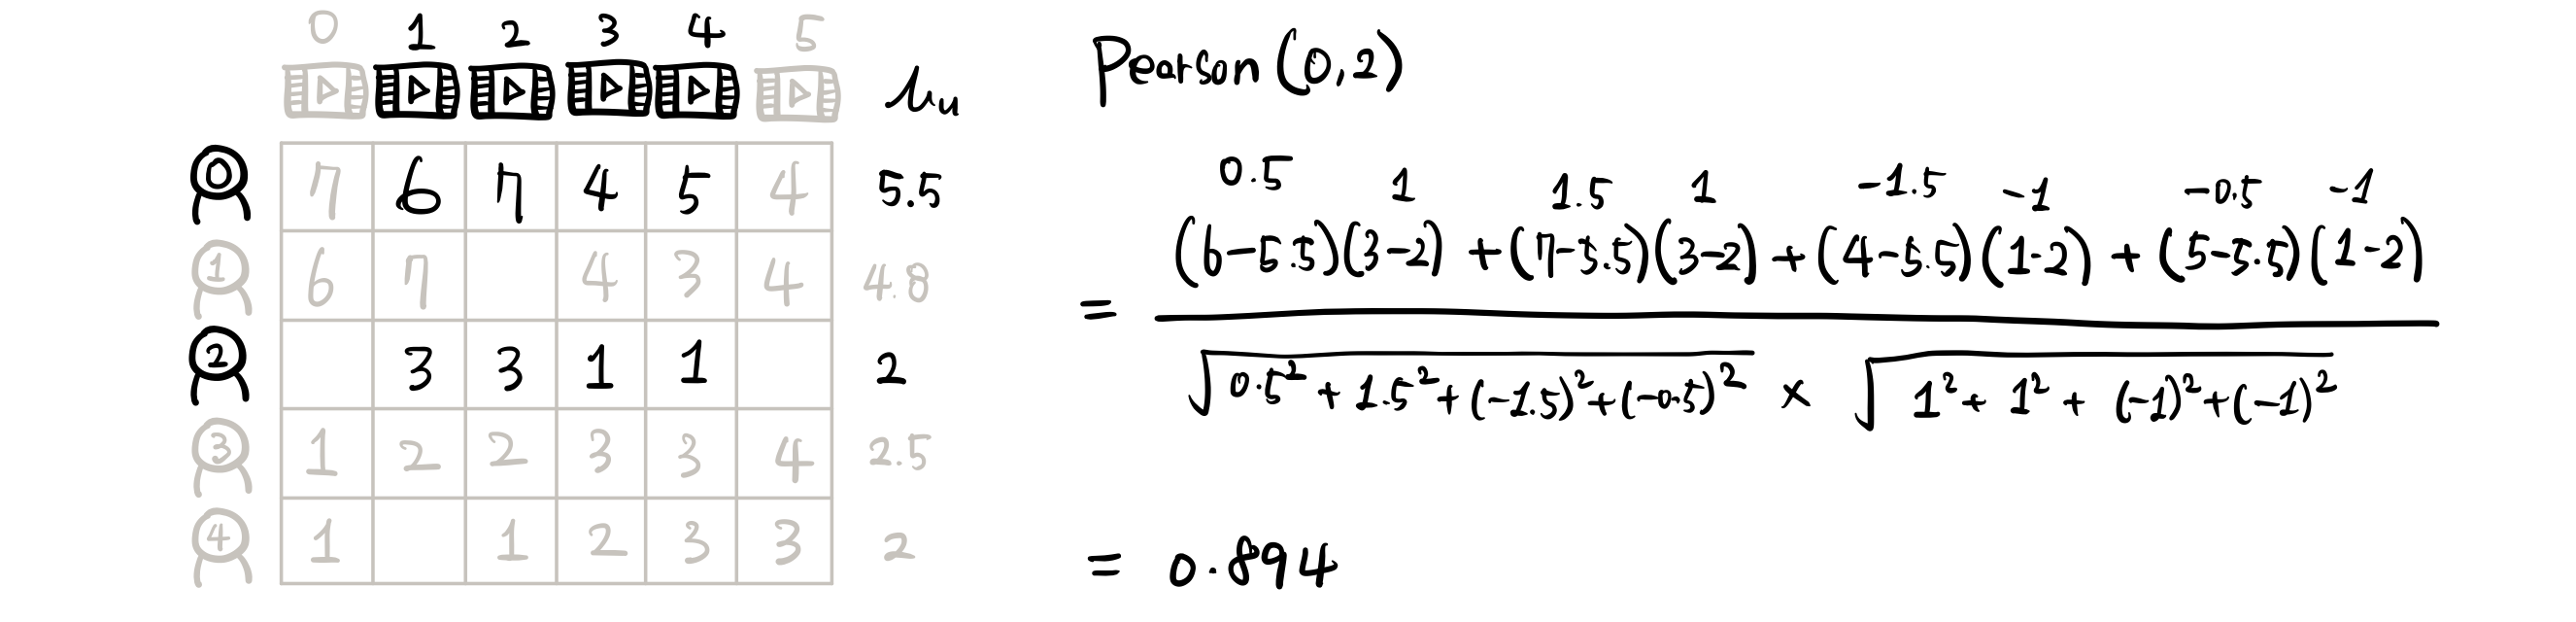 0 1 2 3 4 5
μu
Pearson (0,2)
0 7 6 7 4 5 4 5.5
1 6 7 4 3 4 4.8
2 3 3 1 1 2
3 1 2 2 3 3 4 2.5
4 1 1 2 3 3 2
0.5 1 1.5 1 -1.5 -1 -0.5 -1
= (6-5.5)(3-2) + (7-5.5)(3-2) + (4-5.5)(1-2) + (5-5.5)(1-2)
√0.5² + 1.5² + (-1.5)² + (-0.5)² × √1² + 1² + (-1)² + (-1)²
= 0.894